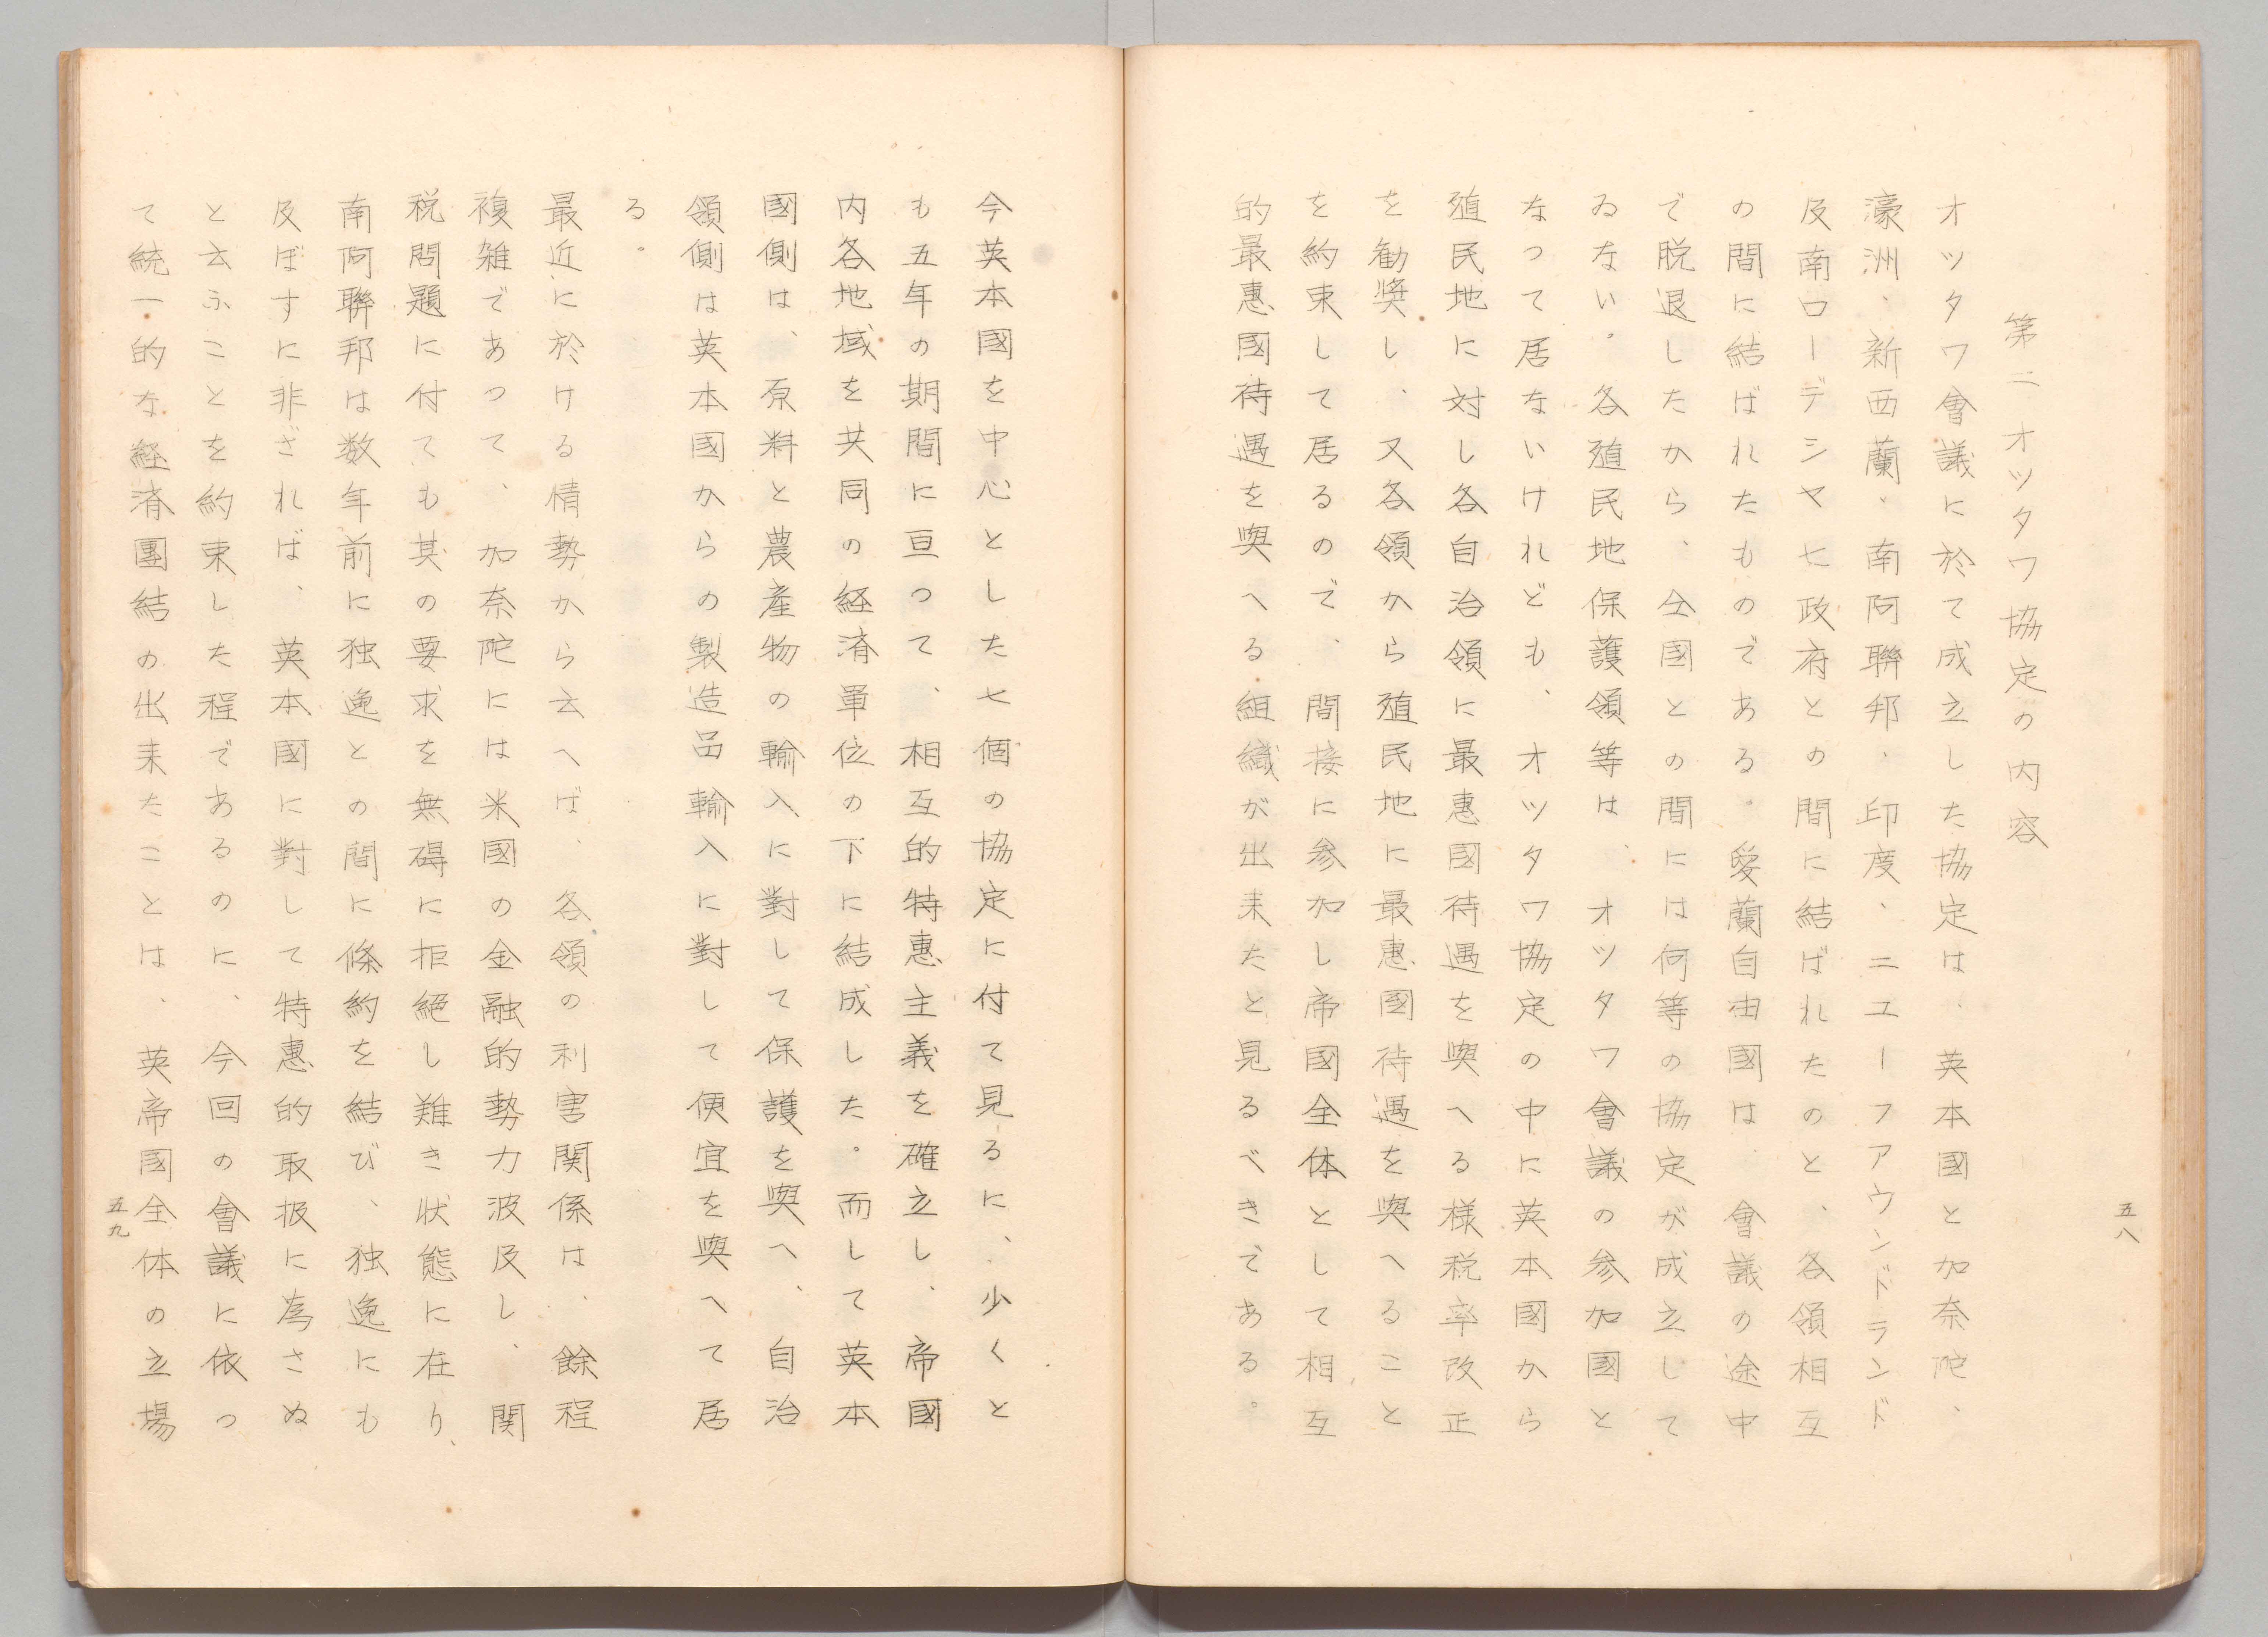 第二　オツタワ協定の内容
オツタワ會議に於て成立した協定は、英本國と加奈陀、
濠洲、新西蘭、南阿聯邦、印度、ニユーフアウンドランド
及南ローデシヤ七政府との間に結ばれたのと、各領相互
の間に結ばれたものである。愛蘭自由國は、會議の途中
で脱退したから、仝國との間には何等の協定が成立して
ゐない。各殖民地保護領等は、オツタワ會議の参加國と
なつて居ないけれども、オツタワ協定の中に英本國から
殖民地に対し各自治領に最惠國待遇を與へる様税率改正
を勧奬し、又各領から殖民地に最惠國待遇を與へること
を約束して居るので、間接に参加し帝國全体として相互
的最惠國待遇を與へる組織が出来たと見るべきである。
五八
今英本國を中心とした七個の協定に付て見るに、少くと
も五年の期間に亘つて、相互的特惠主義を確立し、帝國
内各地域を共同の経済單位の下に結成した。而して英本
國側は、原料と農産物の輸入に對して保護を與へ、自治
領側は英本國からの製造品輸入に對して便宜を與へて居
る。
最近に於ける情勢から云へば、各領の利害関係は、餘程
複雑であつて、加奈陀には米國の金融的勢力波及し、関
税問題に付ても其の要求を無碍に拒絕し難き状態に在り、
南阿聯邦は数年前に独逸との間に條約を結び、独逸にも
及ぼすに非ざれば、英本國に對して特惠的取扱に為さぬ
と云ふことを約束した程であるのに、今回の會議に依つ
て統一的な経済團結の出来たことは、英帝國全体の立場
五九